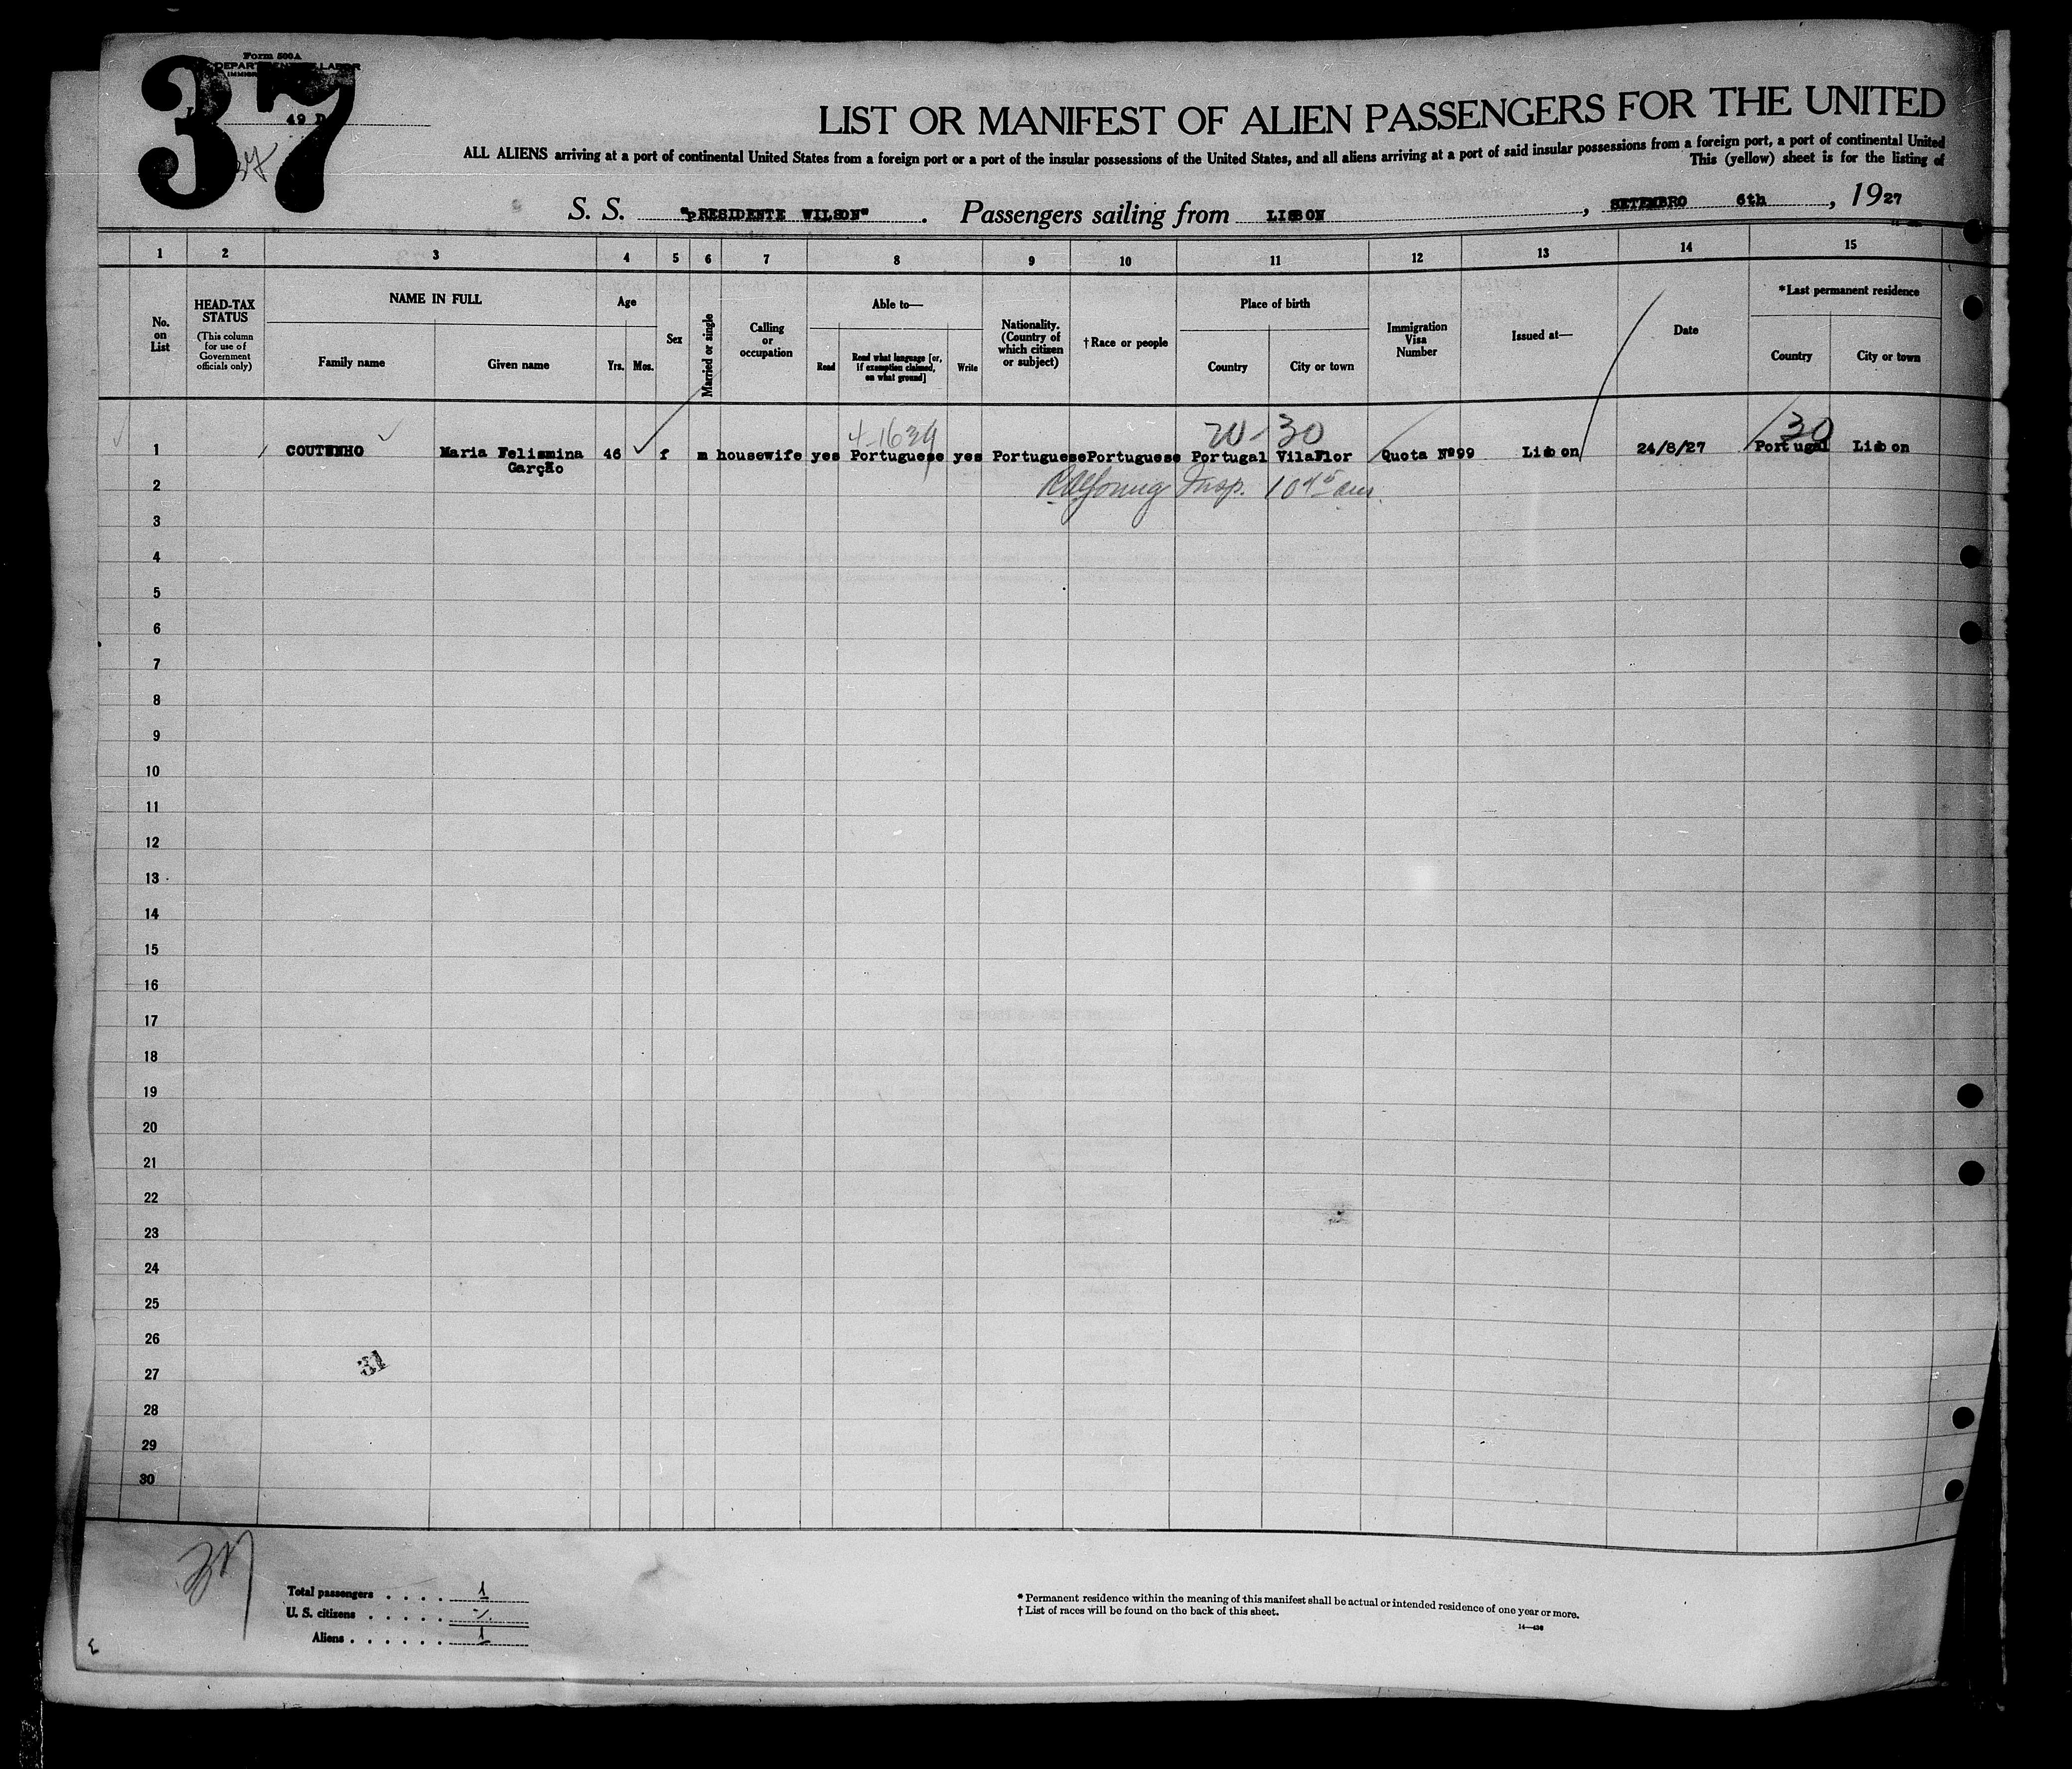 Form 500A
37
49 D
37
LIST OR MANIFEST OF ALIEN PASSENGERS FOR THE UNITED
ALL ALIENS arriving at a port of continental United States from a foreign port or a port of the insular possessions of the United States, and all aliens arriving at a port of said insular possessions from a foreign port, a port of continental United
This (yellow) sheet is for the listing of
S. S. "PRESIDENTE WILSON" . Passengers sailing from LISBON , SETEMBRO 6th , 1927
1 2 3 4 5 6 7 8 9 10 11 12 13 14 15
No. on List
HEAD-TAX STATUS
(This column for use of Government officials only)
NAME IN FULL
Family name
Given name
Age
Yrs.
Mos.
Sex
Married or single
Calling or occupation
Able to—
Read
Read what language [or, if exemption claimed, on what ground]
Write
Nationality. (Country of which citizen or subject)
† Race or people
Place of birth
Country
City or town
Immigration Visa Number
Issued at—
Date
* Last permanent residence
Country
City or town
4-1639
20-30
30
1 COUTINHO Maria Felismina 46 f m housewife yes Portuguese yes Portuguese Portuguese Portugal VilaFlor Quota Nº99 Lisbon 24/8/27 Portugal Lisbon
Garção
2
Insp. 10 45 am.
3
4
5
6
7
8
9
10
11
12
13
14
15
16
17
18
19
20
21
22
23
24
25
26
31
27
28
29
30
Total passengers . . . . 1
U. S. citizens . . . . .
Aliens . . . . . . 1
* Permanent residence within the meaning of this manifest shall be actual or intended residence of one year or more.
† List of races will be found on the back of this sheet.